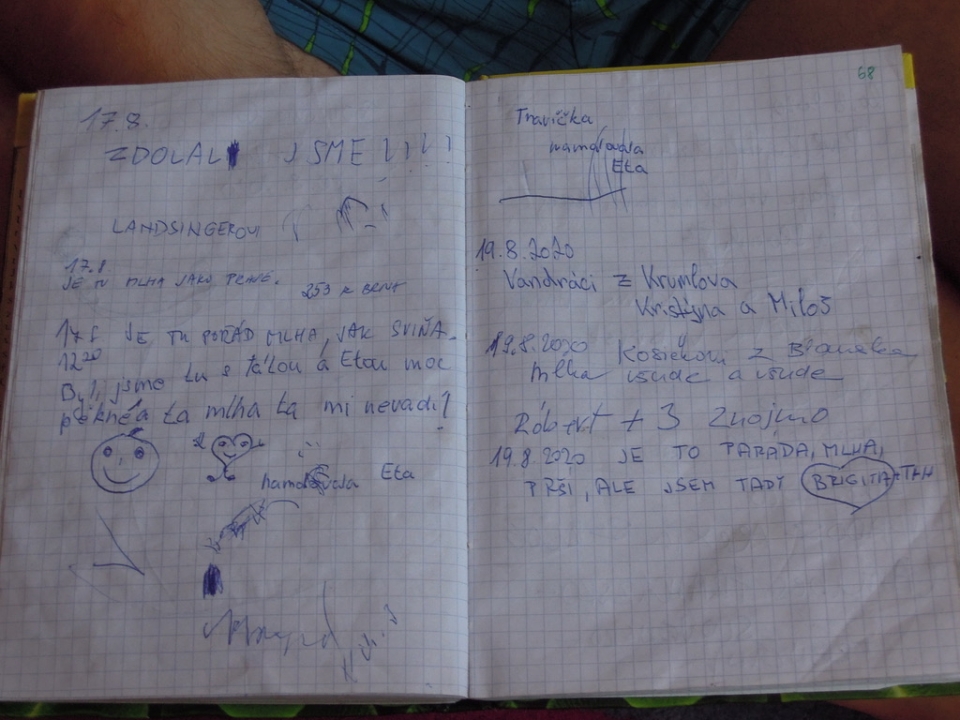 17.8.
ZDOLALI JSME !!!!
LANDSINGEROVI
17.8
JE TU MLHA JAKO PRASE.
JE TU POŘÁD MLHA, JAK SVIŇA.
12 20
Byli jsme tu s tátou a Etou moc
pěkné a ta mlha ta mi nevadí!
namalovala Eta
68
Travička
namalovala
Eta
19.8.2020
Vandráci z Krumlova
Kristýna a Miloš
19.8.2020
mlha všude a všude
Róbert + 3 Znojmo
19.8.2020 JE TO PARÁDA, MLHA,
PRŠÍ, ALE JSEM TADY BRIGITA